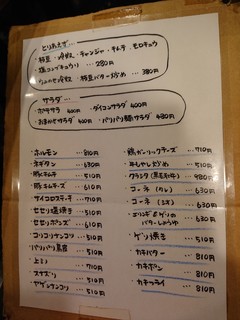 とりあえず…
・枝豆 ・冷奴 ・チャンジャ ・キムチ ・モロキュウ
・塩コンブキュウリ … 280円
・枝豆バター炒め … 380円
サラダ…
・ポテサラ 400円 ・ダイコンサラダ 400円
・おまかせサラダ 400円 ・パリパリ麺サラダ 480円
・ホルモン … 810円
・ネギタン … 630円
・豚キムチ … 510円
・豚キムチーズ … 610円
・サイコロステーキ … 710円
・セセリ塩焼き … 510円
・セセリポンズ … 610円
・コリコリケンコツ … 510円
・パリパリ鳥皮 … 510円
・上ミノ … 710円
・スナズリ … 510円
・ヤゲンケンコツ … 510円
・鶏ガーリックチーズ … 710円
・牛もやし炒め … 510円
・クラシタ (黒毛和牛) … 980円
・コーネ (タレ) … 630円
・コーネ (玉ネギ) … 630円
バターしょうゆ … 630円
・ゲソ焼き … 510円
・カキバター … 810円
・カキポン … 810円
・カキフライ … 810円